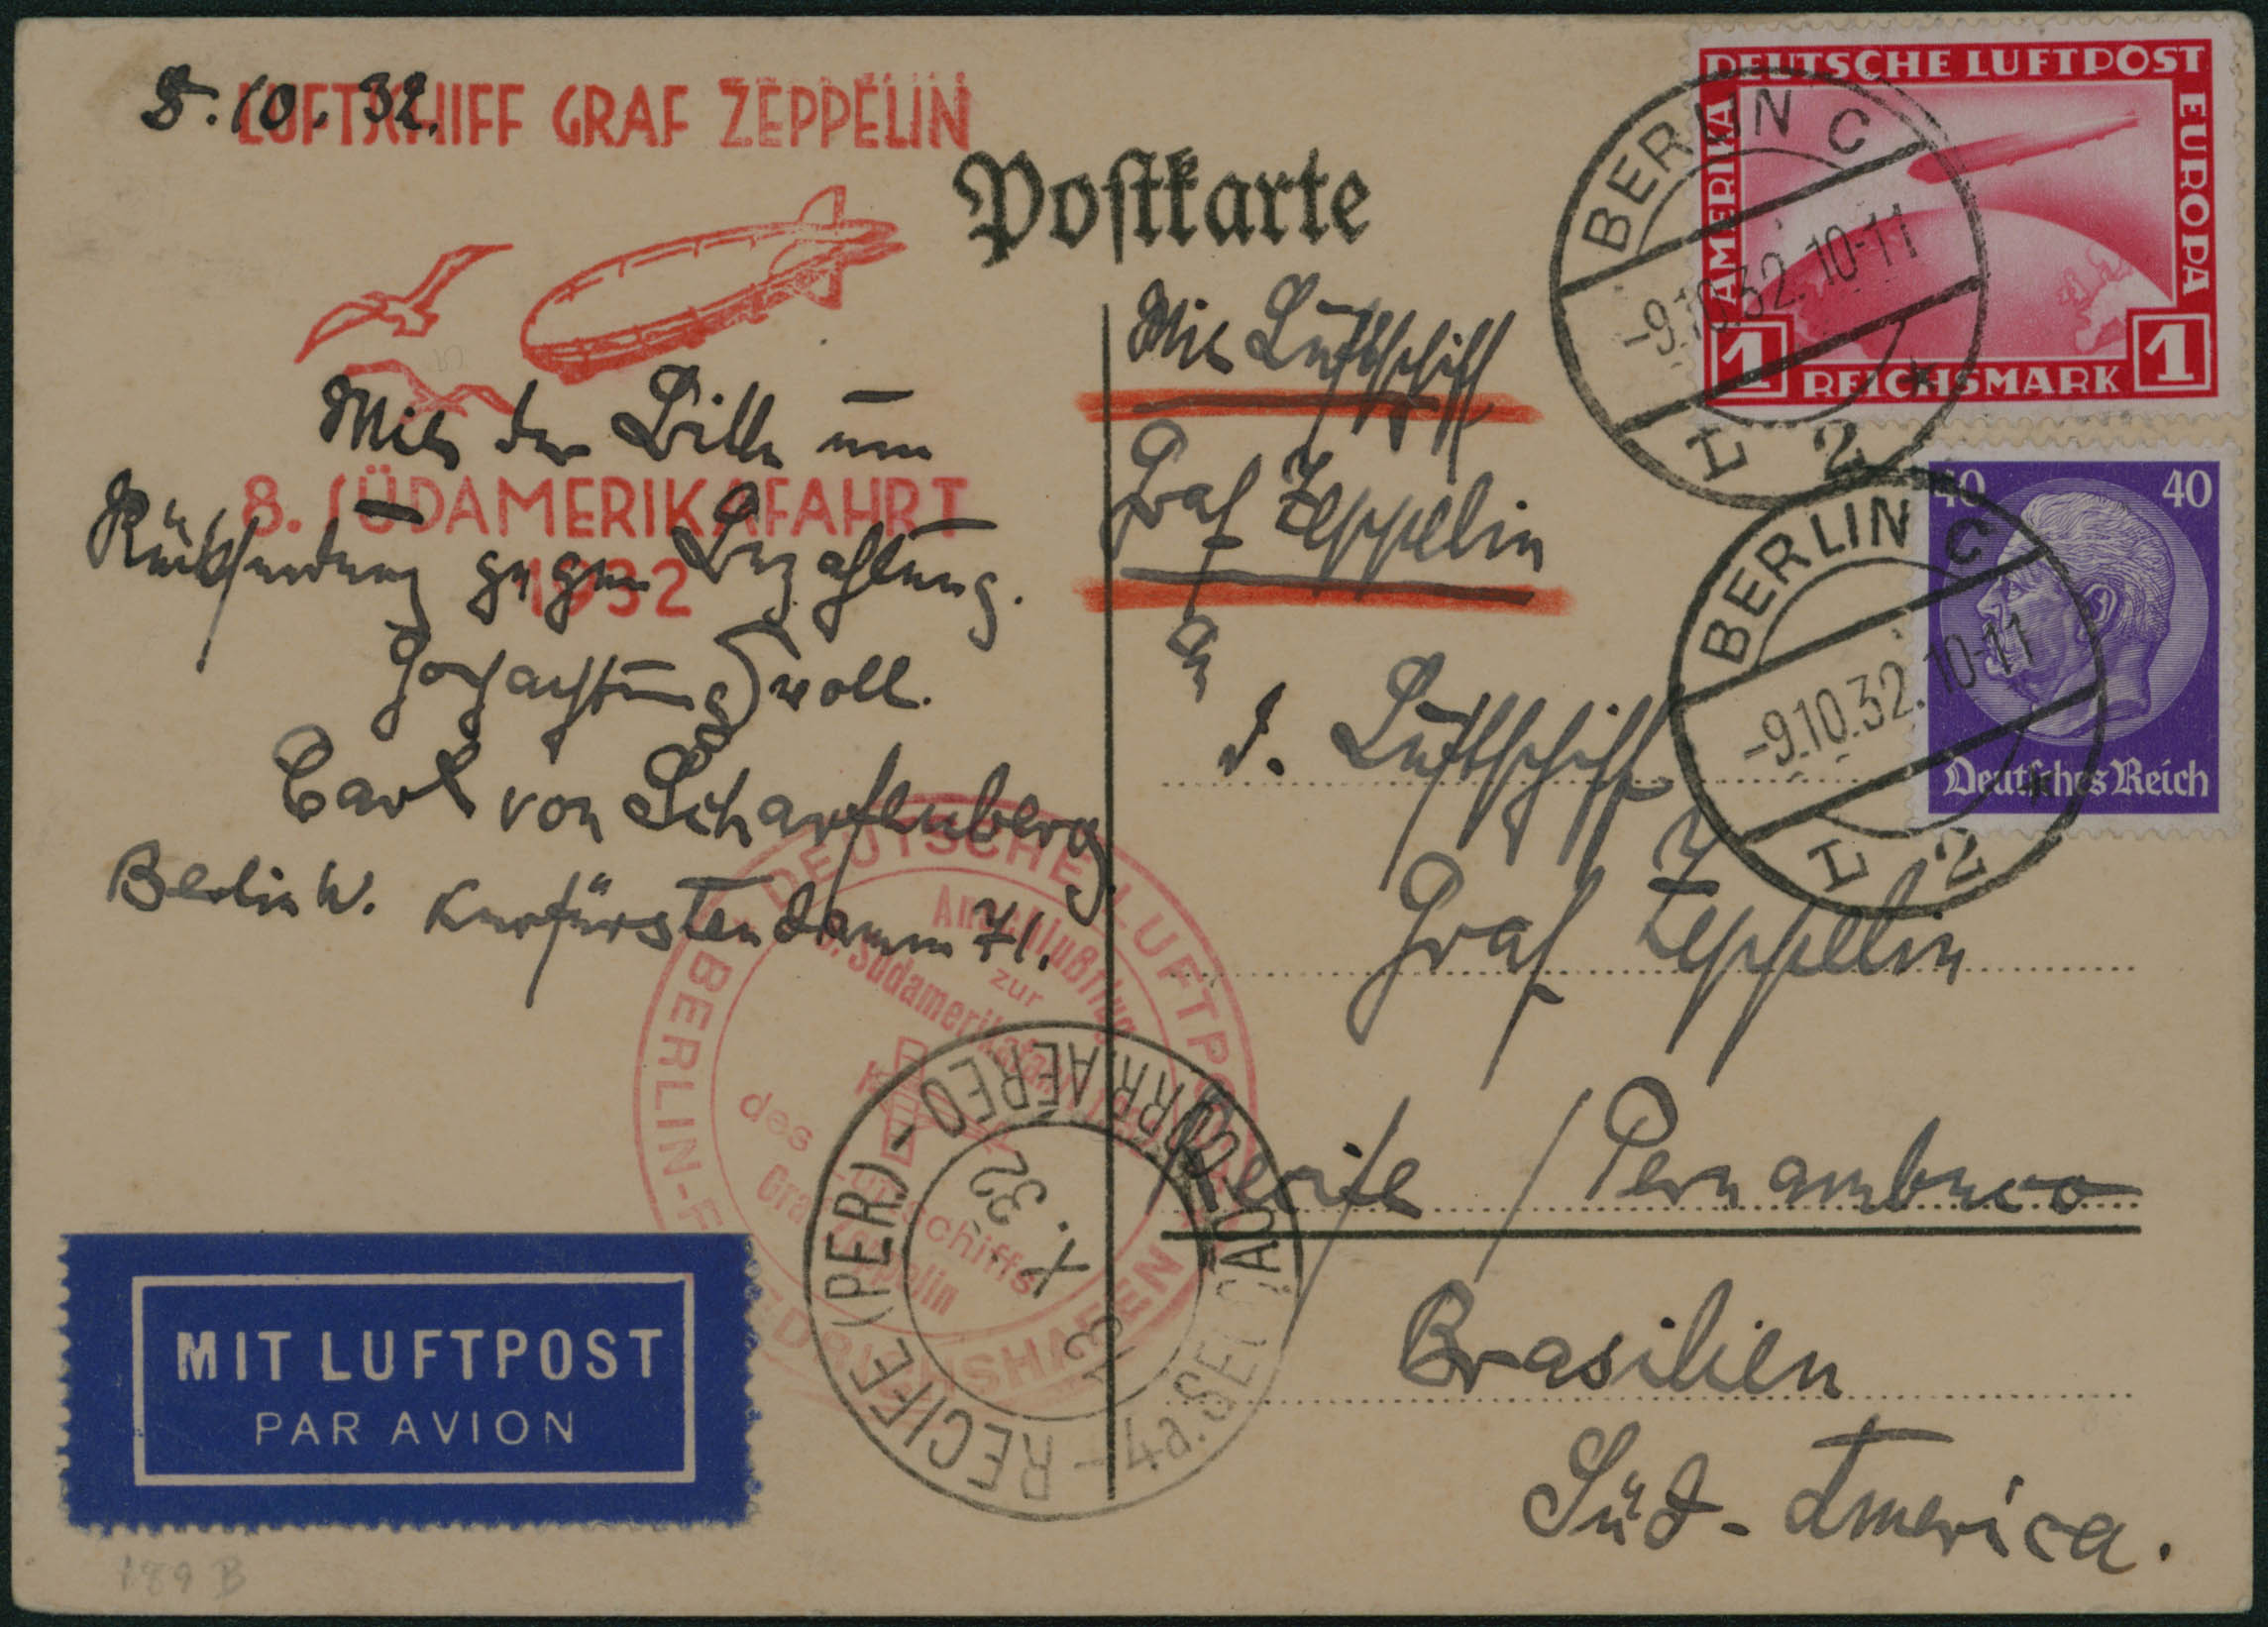 8.10.32.
LUFTSCHIFF GRAF ZEPPELIN
Mit der Bitte um
8. SÜDAMERIKAFAHRT
Rücksendung gegen Bezahlung.
1932
Hochachtungsvoll.
Carl von Scharfenberg
Berlin W. Kurfürstendamm 71.
Postkarte
Mit Luftschiff
Graf Zeppelin
An
d. Luftschiff
Graf Zeppelin
Recife / Pernambuco
Brasilien
Süd-America.
DEUTSCHE LUFTPOST
AMERIKA
EUROPA
1 REICHSMARK 1
BERLIN C
-9.10.32.10-11
L 2
40 40
Deutsches Reich
BERLIN C
-9.10.32.10-11
L 2
DEUTSCHE LUFTPOST
BERLIN-FRIEDRICHSHAFEN
Anschlußflug
zur
8. Südamerikafahrt
des Luftschiffs
Graf Zeppelin
RECIFE (PER.) - CORR. AEREO
4a. SECÇAO
13 X. 32
MIT LUFTPOST
PAR AVION
189 B